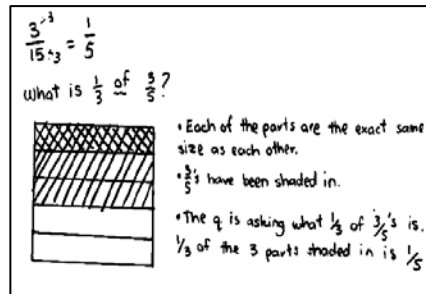 3÷3/15÷3 = 1/5
What is 1/3 of 3/5?
• Each of the parts are the exact same
size as each other.
• 3/5's have been shaded in.
• The q is asking what 1/3 of 3/5's is.
1/3 of the 3 parts shaded in is 1/5